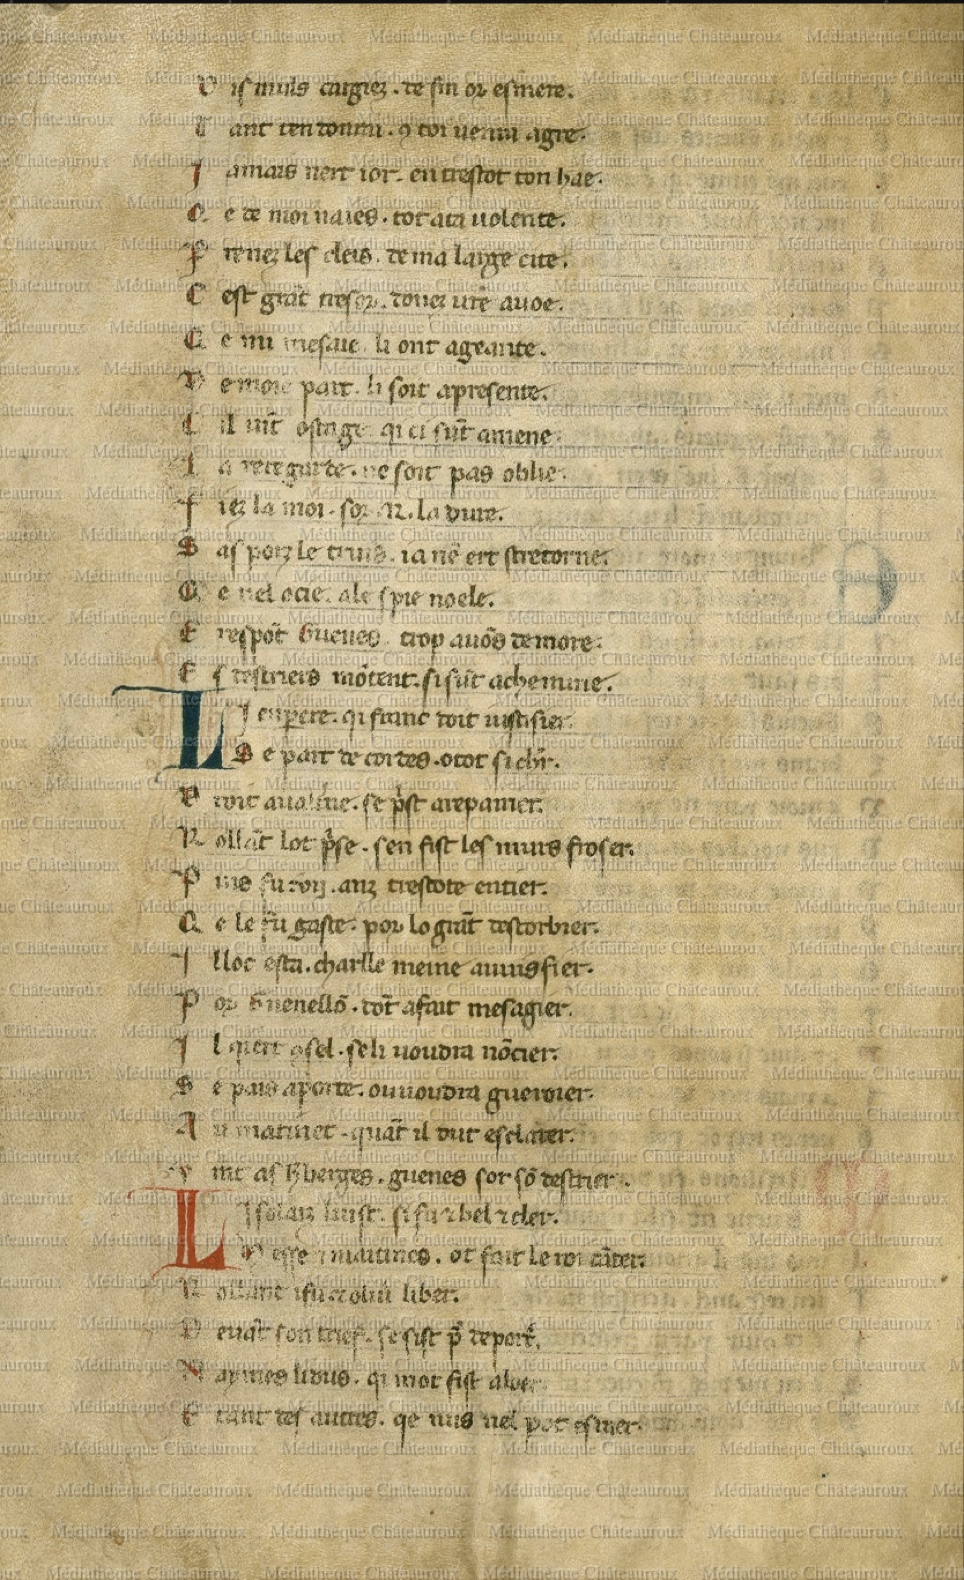 D is muls cargiez . de fin or esmere.
T ant ten donrai . 9 toi venra agre.
J amais nert ior . en trestot ton hae.
Q e de moi naies . tot a ta volente.
P renez les cleis . de ma large cite.
C est grāt tresor . donez vr̄e avoe.
Q e mi mesaie li ont agrante.
D e moie part . li soit apresente.
C il .uīt ostage qi ci sūt amene.
L a reregarde . ne soit pas oblie.
F iez la moi . sor .R. la dure.
S as poiz le truis . ia nē ert stretorne.
Q e nel ocie . ale spie noele.
E respōt Guenes . trop auōs demore.
E s destriers mōtent . si sūt achemine.
L J enpere . qi franc doit iustisier.
S e part de cordes . o tot si chr̄.
D roit a ualt̄ne . se pr̄st a repairier.
R ollāt lot pr̄se . sen fist les murs froser.
P uis fu .xx. anz trestote entier.
Q e le fu gaste . por lo grāt destorbier.
J lloc esta . charlle meine au uis fier.
P or Guenellō . dōt a fait mesagier.
J l qiert 9sel . se li voudra nōcier.
S e pais aporte . ou voudra gueroier.
A u matinet . quāt il dut esclairer.
V int as h̄berges . guenes sor sō destrier.
L J solauz luist . si fu 7 bel 7 cler.
M esse 7 matines . ot fait le roi cāter.
R ollant i fu 7 oliū li ber.
D euāt son tref . se sist p̄ deport̄.
N aymes li dus . qi mot fist a loer.
E tant des autres . qe nus nel pot esmer.